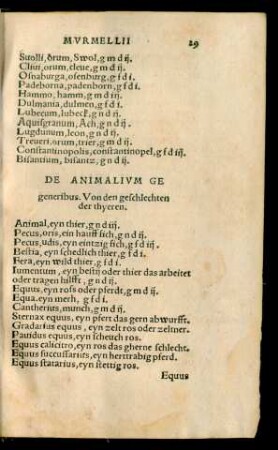 MVRMELLII 29
Suolli, orum, Swol, g m d ij.
Cliui, orum, cleue, g m d ij.
Osnaburga, osenburg, g f d i.
Padeborna, padenborn, g f d i.
Hammo, hamm, g m d iij.
Dulmania, dulmen, g f d i.
Lubecum, lubeck, g n d ij.
Aquisgranum, Ach, g n d ij.
Lugdunum, leon, g n d ij.
Treueri, orum, trier, g m d ij.
Constantinopolis, constantinopel, g f d iij
Bisantium, bisantz, g n d ij.
DE ANIMALIVM GE
generibus. Von den geschlechten
der thyeren.
Animal, eyn thier, g n d iij.
Pecus, oris, ein hauff fich, g n d iij.
Pecus, udis, eyn eintzig fich, g f d iij.
Bestia, eyn schedlich thier, g f d i.
Fera, eyn wild thier, g f d i.
Iumentum, eyn bestij oder thier das arbeitet
oder tragen hilfft, g n d ij.
Equus, eyn ross oder pferdt, g m d ij.
Equa. eyn merh, g f d i.
Cantherius, munch, g m d ij.
Sternax equus, eyn pfert das gern abwurfft.
Gradarius equus, eyn zelt ros oder zeltner.
Pauidus equus, eyn scheuch ros.
Equus calcitro, eyn ros das gherne schlecht.
Equus succussarius, eyn herttrabig pferd.
Equus statarius, eyn stettig ros.
Equus